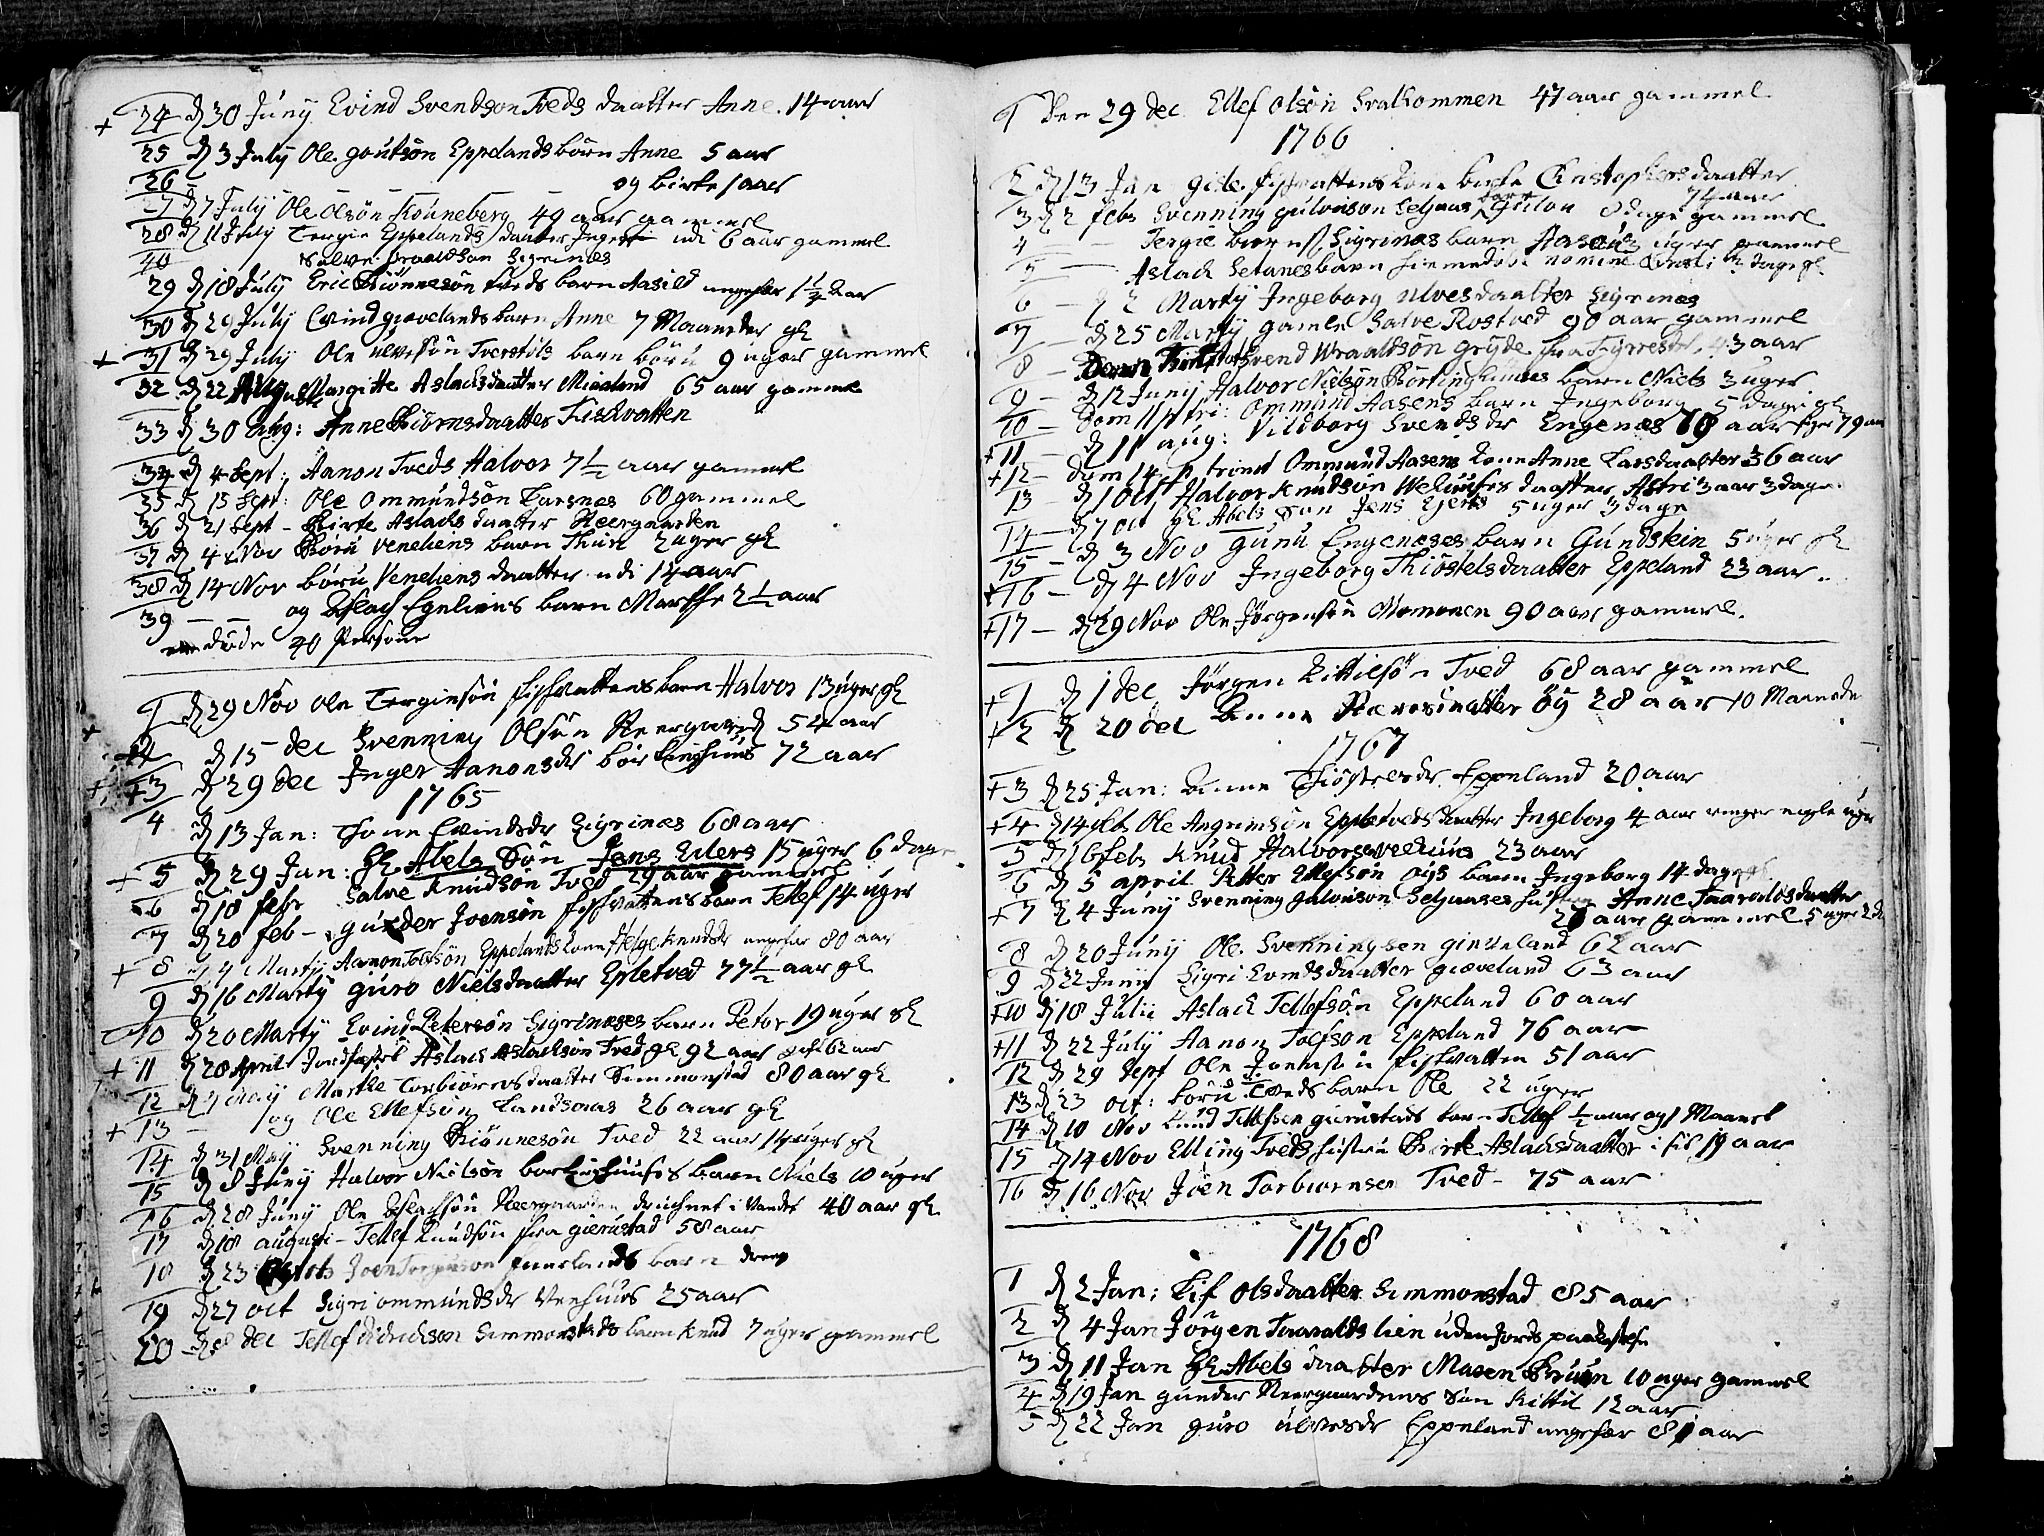 + 24 d 30 Juny Evind Svendsøn Tveds daatter Anne 14 aar
25 d 3 July Ole goutsøn Eppelands børn Anne 5 aar
26 og birte 1 aar
27 d 7 July Ole Olsøn 49 aar gammel
28 d 11 July Tergie Eppelands daatter udi 6 aar gammel
40 Salve Sigrines
29 d 18 July Eric Biønnesøn Tveds barn Aasild ungefær 1 1/2 aar
30 d 29 July Evind giævelands barn Anne 7 Maaneder gl
+ 31 d 29 July Ole ulvesøn Tverstøls barn børu 9 uger gammel
32 d 22 August Margitte Aslachsdaatter Miaaland 65 aar gammel
33 d 30 Aug: Anne Biørnsdaatter Fiskvatten
34 d 4 Sept: Aanon Tveds Halvor 7 1/2 aar gammel
35 d 15 Sept: Ole Ommundsøn 60 gammel
36 d 21 Sept - Birte Aslachsdaatter Neergaarden
37 d 4 Nov Børu Veneliens barn 2 uger gl
38 d 14 Nov børu Veneliens daatter udi 14 aar
39 - - og Aslach Egeliens barn Marthe 2 1/2 aar
døde 40 Persone
1 d 29 Nov Ole Terginsøn fischvattens barn Halvor 13 uger gl
+ 2 d 15 dec Svenning Olsøn Neergaard 54 aar
+ 3 d 29 dec Inger Aanonsdr børtinghuus 72 aar
1765
4 d 13 Jan: Tone Evindsdr Sigrinæs 68 aar
+ 5 d 29 Jan: Hr Abels Søn Jens Eilers 15 uger 6 dage
6 d 18 febr Salve Knudsøn Tved 29 aar gammel
7 d 20 feb - gunder Joensøn fischvattens barn Tellef 14 uger
+ 8 d 4 Marty Aanon Tolfsøn Eppelands kone Helge Knudsdr ungefær 80 aar
9 d 16 Marty guro Nielsdaatter Epletved 77 1/2 aar gl
10 d 20 Marty Evind Petersøn Sigrinæses barn Peter 19 uger gl
+ 11 d 28 April Jordfæstet Aslach Aslachsøn Tved gl 92 aar 62 aar
12 d May Marthe Torbiørnsdaatter Simmonstad 80 aar gl
+ 13 - og Ole Ellefsøn Landsaas 26 aar gl
14 d 31 May Svenning Biønnesøn Tved 22 aar 14 uger gl
15 d 8 Juny Halvor Nielsøn børtinghuuses barn Niels 10 uger
16 d 28 Juny Ole Aslachsøn Neergaarden druchnet i Vandet 40 aar gl
17 d 18 augusti - Tellef Knudsøn fra gierustad 58 aar
18 d 23 Joen barn dreng
19 d 27 oct Sigri ommundsdr Veehuus 25 aar
20 d 8 dec Tellef didrichson Simmonstads barn Knud 7 uger gammel
1 Den 29 dec Ellef olsøn Svalkommen 47 aar gammel
1766
2 d 13 Jan gisle fischvattens kone birte Christophersdaatter
74 aar
3 d 2 febr Svenning gulovsøn Seljaas gulou 8 dage gammel
4 - - Tergie Sigrinæs barn uger gammel
5 - - Aslach Setanes barn hiemedøbt nomine Christi dage gl
6 - d 2 Marty Ingeborg Ulvesdaatter Sigrinæs
7 - d 25 Marty gamle Salve Rostved 90 aar gammel
8 - Svend Wraaldsøn gryde fra Fyrresdal 43 aar
9 - d 12 Juny Halvor Nielsøn Børtinghuuses barn Niels 3 uger
10 - Dom 11 p tri: Ommund Aasens barn Ingeborg 5 dage gl
+ 11 - d 11 aug: Vildborg Svendsdr Engenæs 78 aar 79 aar
+ 12 - Dom 14 p trinit Ommund Aasens kone Anne Larsdaatter 36 aar
13 - d 1 Oct Halvor Knudsøn daatter Astri 3 aar 3 dage
14 - d 7 Oct Hr Abels Søn Jens Ejlerts 5 uger 3 dage
15 - d 3 Nov gunu Engenæses barn Gundstein 5 uger gl
+ 16 - d 4 Nov Ingeborg Thiøstelsdaatter Eppeland 33 aar
+ 17 - d 29 Nov Ole Jørgensøn Momonen 90 aar gammel.
+ 1 d 1 dec Jørgen Kittilsøn Tved 68 aar gammel
+ 2 d 20 dec Anne øy 28 aar 10 Maaneder
1767
+ 3 d 25 Jan: Anne Thiøstelsdr Eppeland 20 aar
+ 4 d 14 feb Ole Angrimsøn Epletveds daatter Ingeborg 4 aar nogle uger
5 d 16 feb Knud Halvorsøn 23 aar
6 d 5 april Petter Ellefsøn øys barn Ingeborg 14 dage gl
+ 7 d 4 Juny Svenning gulovsøn Seljaases hustru Anne Taaraldsdaatter
28 aar gammel 5 uger 2 d
8 d 20 Juny Ole Svenningsen giæveland 62 aar
9 d 22 Juny Sigri Evindsdaatter giæveland 63 aar
+ 10 d 18 July Aslach Tellefsøn Eppeland 60 aar
+ 11 d 22 July Aanon Tolfson Eppeland 76 aar
12 d 29 Sept Ole Joensøn fischvatten 51 aar
13 d 23 oct: børu Tveds barn Ole 22 uger
14 d 10 Nov Knud Tellefsen gierustads barn Tellef 1/2 aar og 1 Maaned
15 d 14 Nov Elling Tveds hustru Birte Aslachsdaatter i sit aar
16 d 16 Nov Joen Torbiørnsen Tved - 75 aar
1768
1 d 2 Jan: Lif Olsdaatter Simmonstad 85 aar
2 d 4 Jan Jørgen Taaraldslien uden Jords paakastelse
3 d 11 Jan Hr Abels daatter Maren Bruun 10 uger gammel
4 d 19 Jan gunder Neergaardens Søn Kittil 12 aar
5 d 22 Jan guro ulvesdr Eppeland ungefær 81 aar